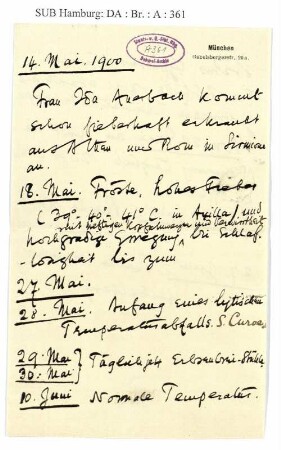 SUB Hamburg: DA : Br. : A : 361
Staats- u. U. Bibl. Hbg.
A 361
Dehmel-Archiv
München
Gabelsbergerstr. 76a.
14. Mai. 1900
Frau Ida Auerbach kommt
schon fieberhaft erkrankt
aus Athen und Rom in Sirmione
an.
18. Mai. Fröste, hohes Fieber
(39°- 40°- 41° C. in Axilla) und
mit heftigen Kopfschmerzen und Verworrenheit
hochgradige Erregung, bei Schlaf-
-losigkeit bis zum
27. Mai.
28. Mai. Anfang eines lytischen
Temperaturabfalls. S. Curve.
29. Mai } Täglich je Erbsenbrei-Stühle
30. Mai }
10. Juni Normale Temperatur.